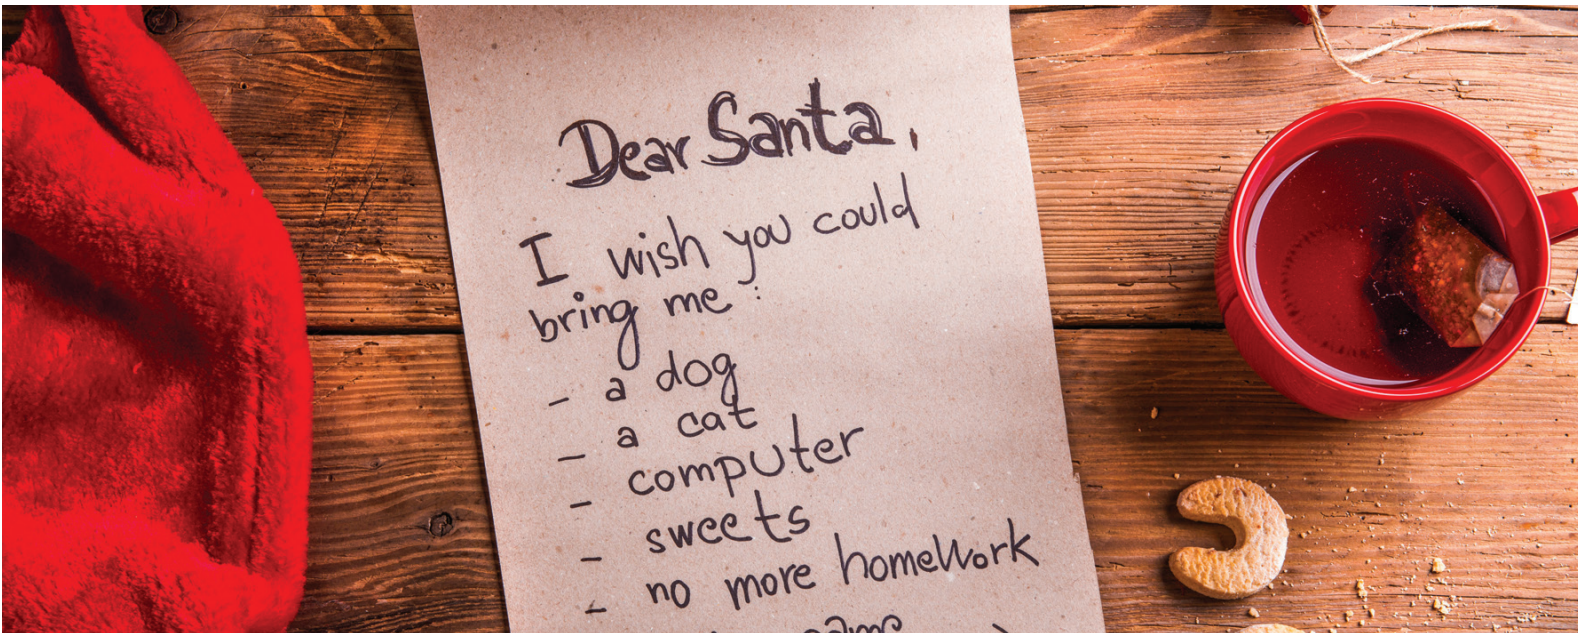 Dear Santa,
I wish you could
bring me:
- a dog
- a cat
- computer
- sweets
- no more homework